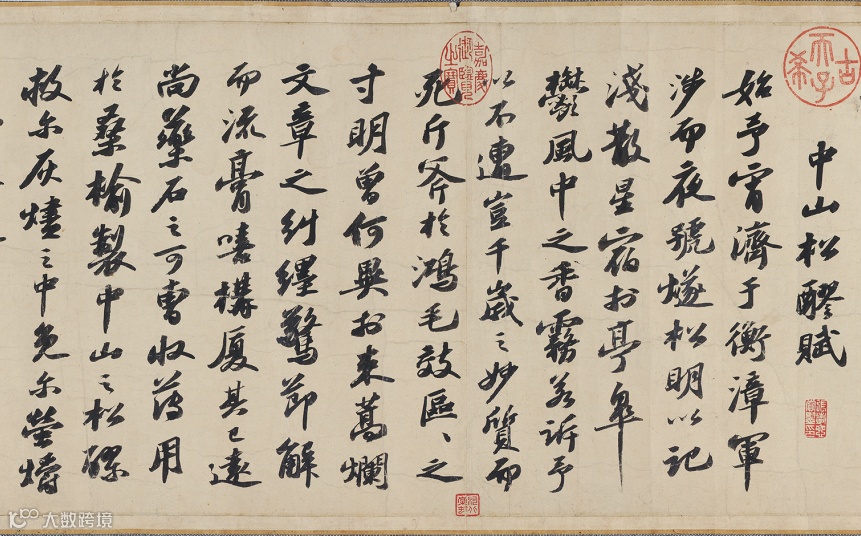 中山松醪賦
始予宵濟于衡漳軍
涉而夜號燧松明以記
淺散星宿於亭皋
鬱風中之香霧若訴予
以不遭豈千歲之妙質而
死斤斧於鴻毛效區、之
寸明曾何異於束蒿爛
文章之糾纆驚節解
而流膏嘻構厦其已遠
尚藥石之可曹收薄用
於桑榆製中山之松醪
救尔灰燼之中免尔螢爝
古
希
天子
嘉慶
御覽
之寶
大数跨境